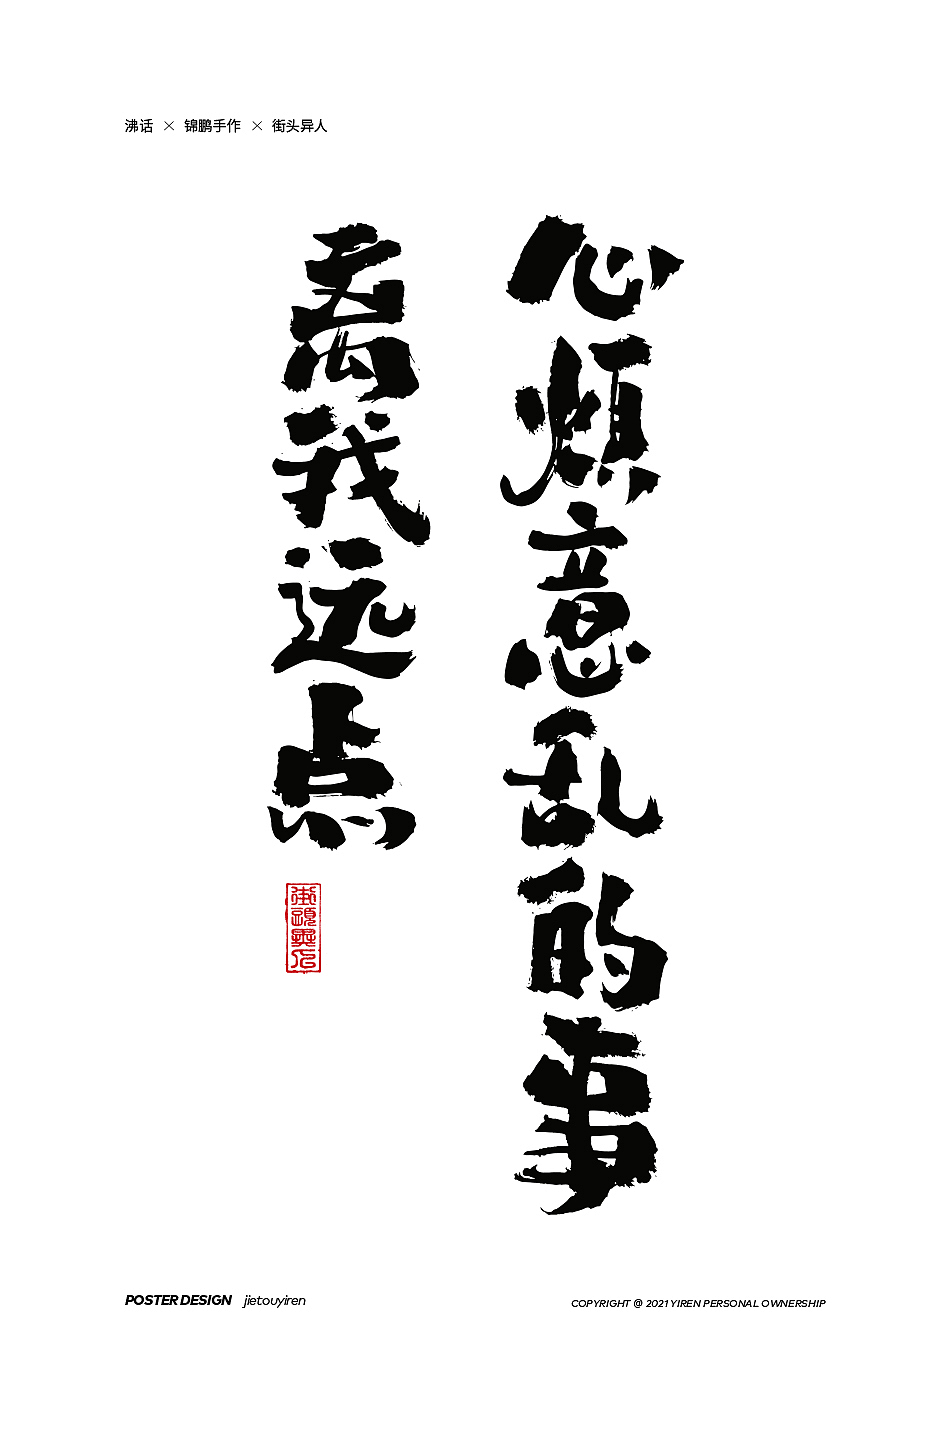 沸话 × 锦鹏手作 × 街头异人
心烦意乱的事
离我远点
街頭異人
POSTER DESIGN jietouyiren
COPYRIGHT @ 2021 YIREN PERSONAL OWNERSHIP